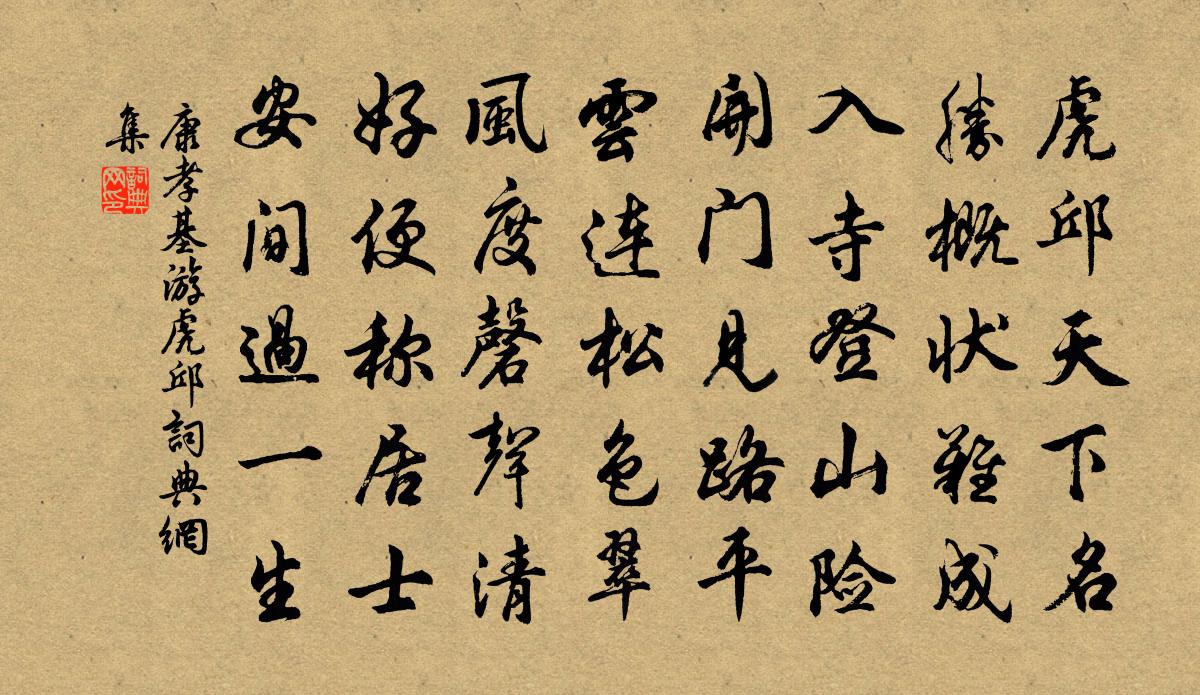 虎邱天下名
勝概状難成
入寺登山险
開门見路平
雲连松色翠
風度磬聲清
好便称居士
安间過一生
康孝基游虎邱詞典網
集
詞典网印